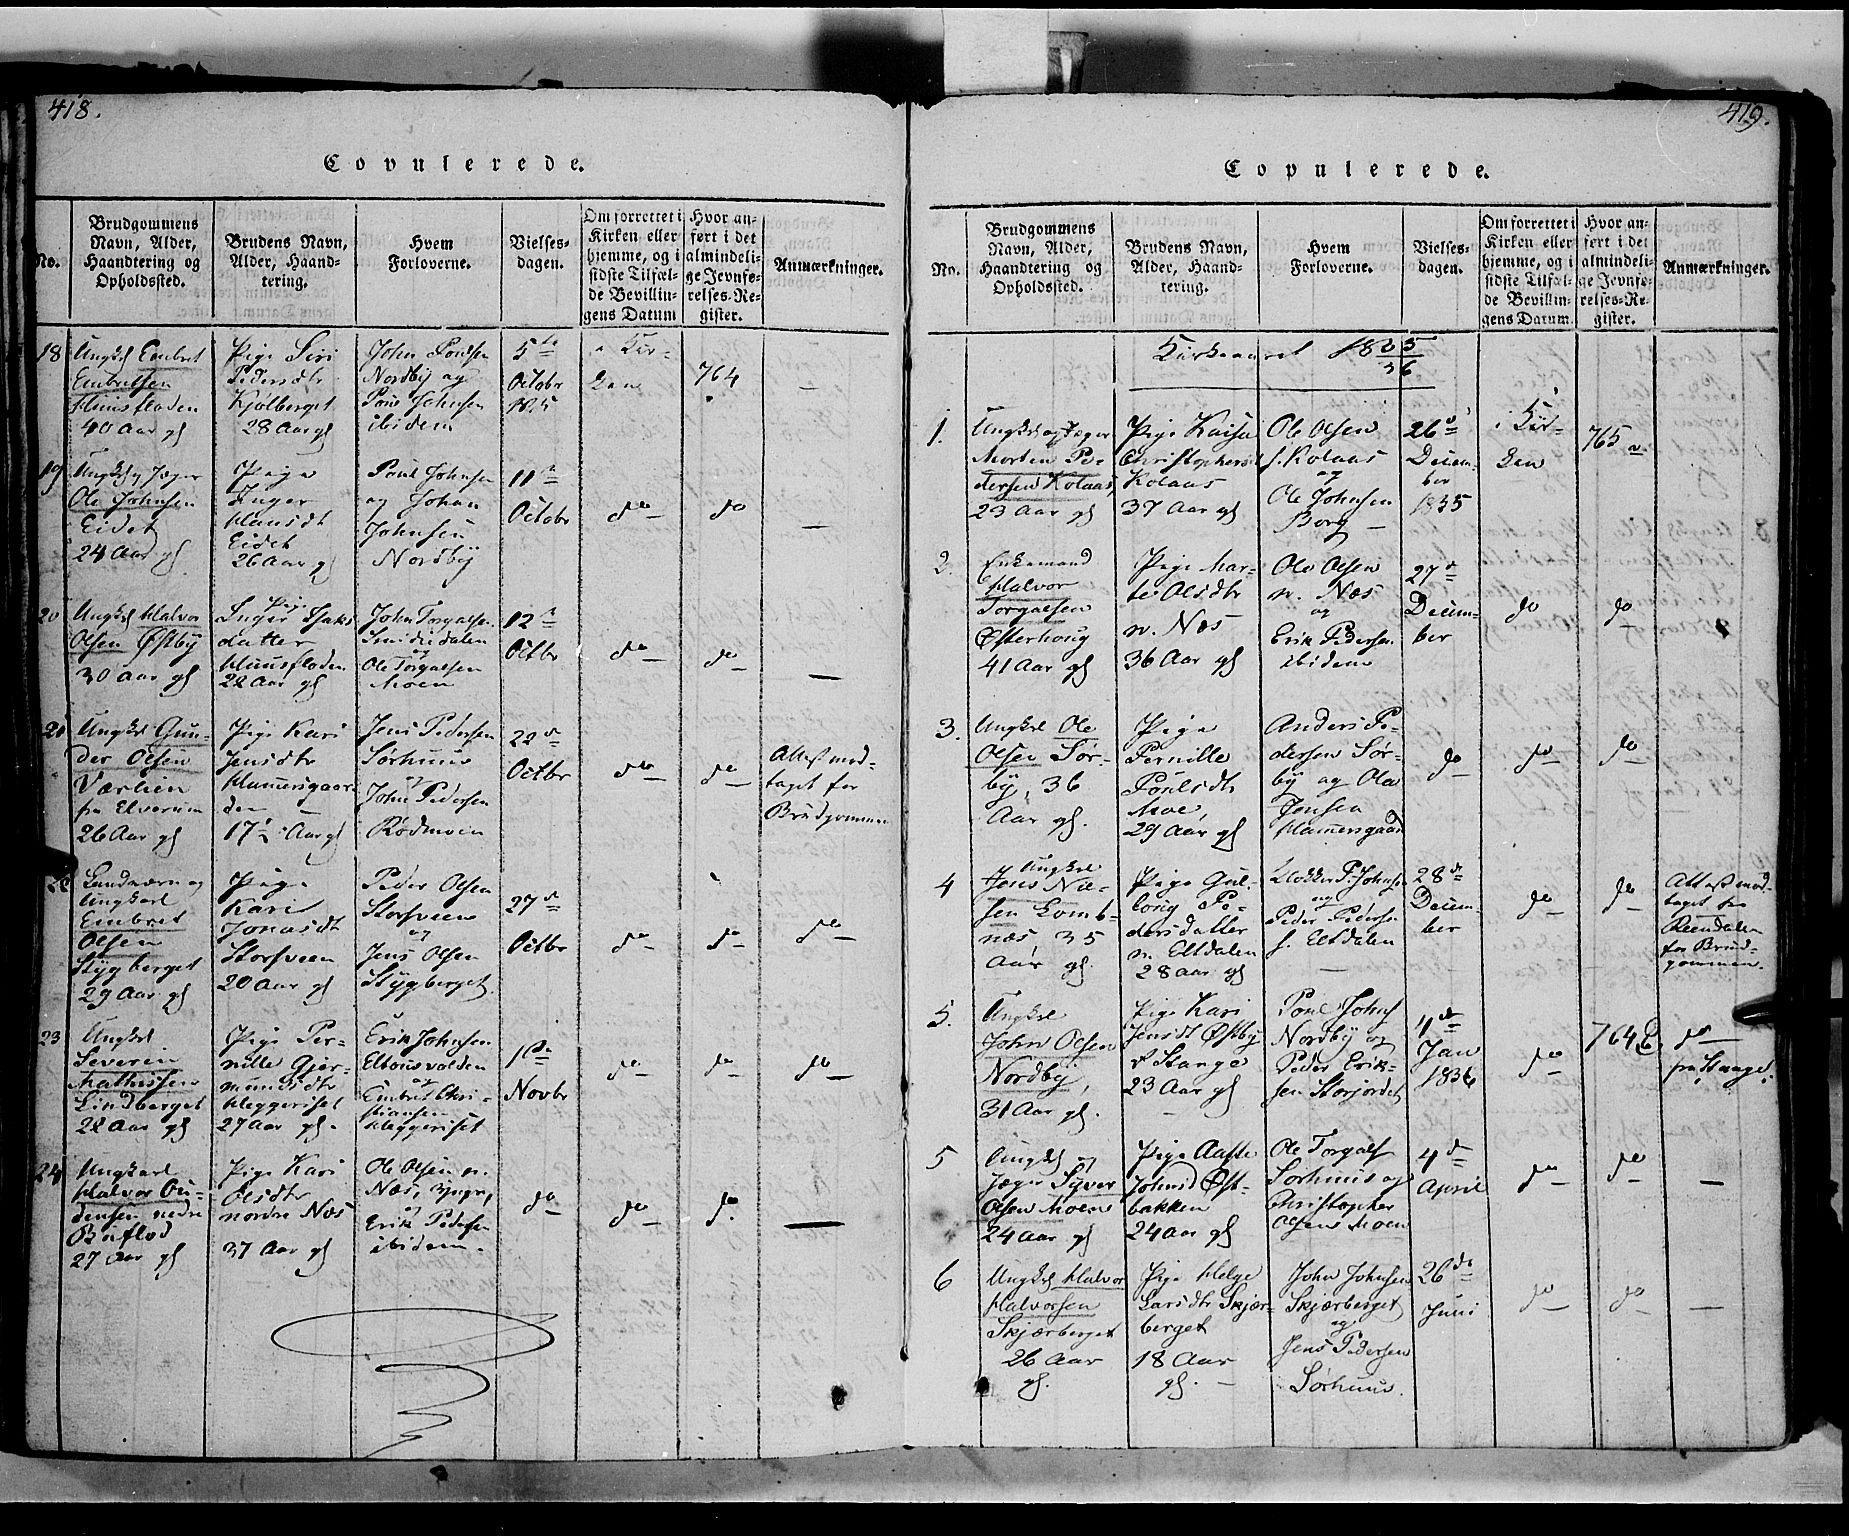 418.
Copulerede.
No.
Brudgommens
Navn, Alder,
Haandtering og
Opholdssted.
Brudens Navn,
Alder, Haand-
tering.
Hvem
Forloverne.
Vielses-
dagen.
Om forrettet i
Kirken eller
hjemme, og i
sidste Tilfæl-
de Bevillin-
gens Datum
Hvor an-
ført i det
almindeli-
ge Jevnfø-
relses-Re-
gister.
Anmærkninger.
18
Ungkl Embret
Embretsen
Huusfloden
40 Aar gl
Pige Siri
Pedersdtr
Kjølberget
28 Aar gl
John Poulsen
Nordby og
Poul Johnsen
ibidem
5te
Octobr
1835
i Kir-
ken
764
—
19
Ungkl og Jæger
Ole Johnsen
Eidet
24 Aar gl
Pige
Inger
Hansdt
Eidet
26 Aar gl
Poul Johnsen
og Johan
Johnsen
Nordby
11te
Octobr
do
do
—
20
Ungkl Halvor
Olsen Østby
30 Aar gl
Pige
Inger Isaks
datter
Huusfloden
22 Aar gl
John Torgalsen
Smidsdalen
og
Ole Torgalsen
Moen
12te
Octbr
do
do
—
21
Ungkl Gun-
der Olsen
Værlien
fra Elverum
26 Aar gl
Pige Kari
Jensdtr
Hammersgaar-
den
17½ Aar gl
Jens Pedersen
Sørhuus
og
John Pedersen
Rødmoen
22de
Octbr
do
do
Attest mod-
taget for
Brudgommen
22
Landværn og
Ungkarl
Embret
Olsen
Stygberget
29 Aar gl
Pige
Kari
Jonasdt
Storsveen
20 Aar gl
Peder Olsen
Storsveen
og
Jens Olsen
Stygberget.
27de
Octbr
do
do
do
23
Ungkl
Severin
Mathissen
Lindberget
22 Aar gl
Pige Per-
nille Gjer-
mundsdtr
Heggeriset
27 Aar gl.
Erik Johnsen
og
Embret Chri-
stiansen
Heggeriset
1ste
Novbr
do
do
do
24
Ungkarl
Halvor Ou-
densen nedre
27 Aar gl
Pige Kari
Olsdtr
nordre Næs
37 Aar gl
Ole Olsen n.
Næs, yngr,
og
Erik Pedersen
ibidem.
do
do
do.
—
419.
Copulerede.
No.
Brudgommens
Navn, Alder,
Haandtering og
Opholdssted.
Brudens Navn,
Alder, Haand-
tering.
Hvem
Forloverne.
Vielses-
dagen.
Om forrettet i
Kirken eller
hjemme, og i
sidste Tilfæl-
de Bevillin-
gens Datum.
Hvor an-
ført i det
almindeli-
ge Jevnfø-
relses-Re-
gister.
Anmærkninger.
Kirkeaaret 1835
36
1.
Ungkl og Jæger
Morten Pe-
dersen Kolaas,
23 Aar gl
Pige Kaisa
Christophersd
Kolaas
37 Aar gl
Ole Olsen
s. Kolaas
og
Ole Johnsen
Borg —
26de
Decem-
ber
1835
i Kir-
ken
765
2.
Enkemand
Halvor
Torgalsen
Østerhoug
41 Aar gl
Pige Mar-
te Olsdtr
n. Næs
36 Aar gl
Ole Olsen
n. Næs
og
Erik Pedersen
ibidem
27de
Decem-
ber
do
do
3.
Ungkl Ole
Olsen Sør-
by, 36
Aar gl.
Pige
Pernille
Poulsdtr
Moe,
29 Aar gl
Anders Pe-
dersen Sør-
by og Ola
Jensen
Hammersgaard
do
do
do
4
Ungkl
Jens Nil-
sen Lomb-
næs, 35
Aar gl.
Pige Gul-
lorig Pe-
dersdatter
n. Eltdalen
28 aar gl
Klokker P. Johnsen
og
Peder Pedersen
s. Eltdalen
28de
Decem-
ber
do
do
Attest mod-
taget fra
Reendalen
for Brud-
gommen.
5.
Ungkl
John Olsen
Nordby,
31 Aar gl.
Pige Kari
Jensdt Østby
Stange
23 Aar gl
Poul Johns
Nordby og
Peder Erik-
sen Storjordet
4de
Jan
1836
do
764
do
fra Stange.
5
Ungkl og
Jæger Syver
Olsen Moen
24 Aar gl
Pige Aaste
Johnsd Øst-
bakken
24 Aar gl
Ole Torgals
Sørhuus og
Christopher
Olsen Moen
4de
April
do
do
—
6
Ungkl Halvor
Halvorsen
Skjærberget
26 Aar
gl.
Pige Helge
Larsdtr Skjær-
berget
18 Aar
gl. —
John Johnsen
Skjærberget
og
Jens Pedersen
Sørhuus.
26de
Juni
do
do
—